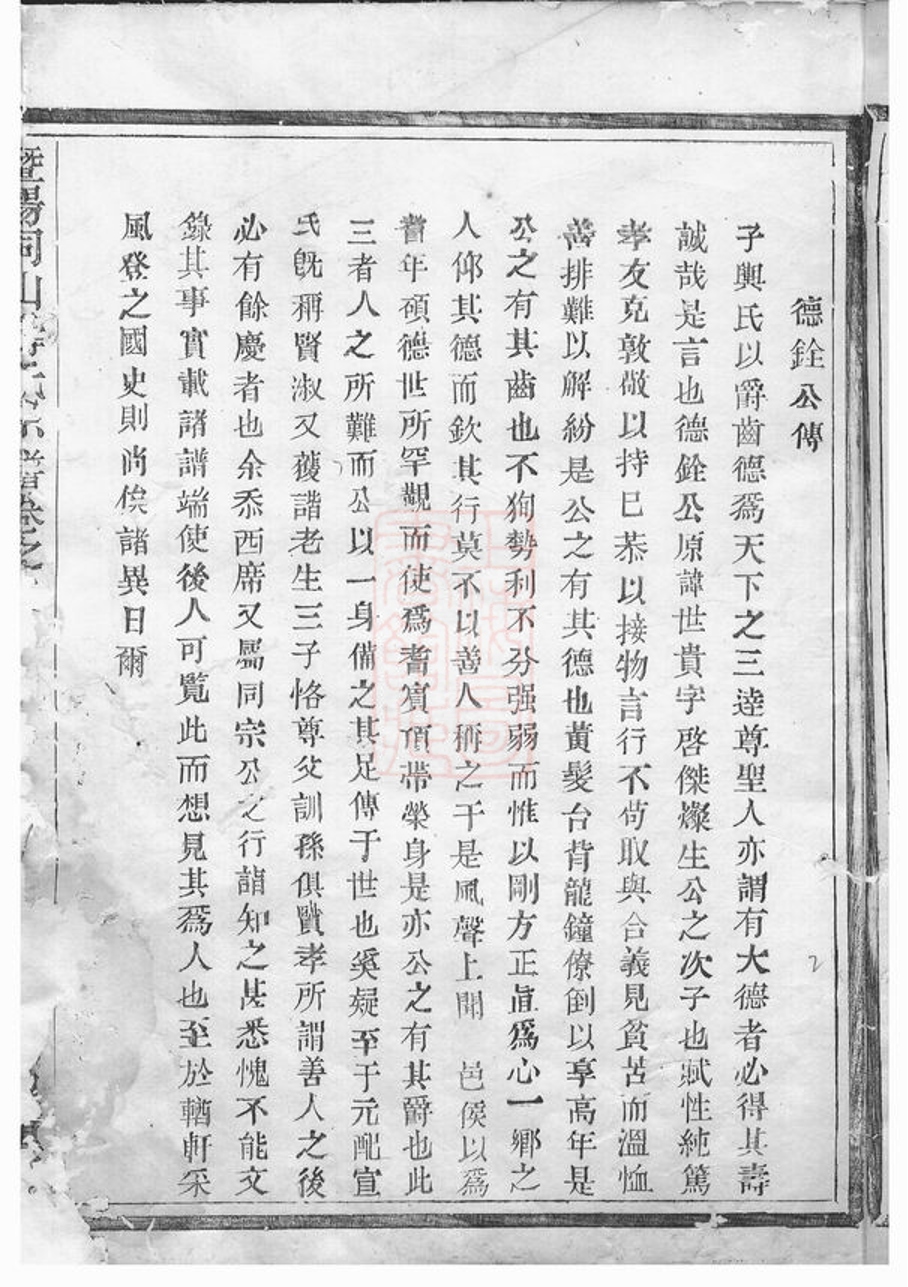 德銓公傳
子輿氏以爵齒德爲天下之三達尊聖人亦謂有大德者必得其壽
誠哉是言也德銓公原諱世貴字啓傑燦生公之次子也賦性純篤
孝友克敦儆以持已恭以接物言行不苟取與合義見貧苦而溫恤
善排難以解紛是公之有其德也黃髮台背龍鐘僚倒以享高年是
公之有其齒也不狥勢利不分强弱而惟以剛方正直爲心一鄉之
人仰其德而欽其行莫不以善人稱之于是風聲上聞 邑侯以爲
耆年碩德世所罕觀而使爲耆賓頂帶榮身是亦公之有其爵也此
三者人之所難而公以一身備之其足傳于世也奚疑至于元配宣
氏旣稱賢淑又獲諧老生三子恪尊父訓孫俱賢孝所謂善人之後
必有餘慶者也余忝西席又屬同宗公之行誼知之甚悉愧不能文
錄其事實載諸譜端使後人可覧此而想見其爲人也至於輶軒采
風登之國史則尚俟諸異日爾
暨陽同山
宗譜卷之